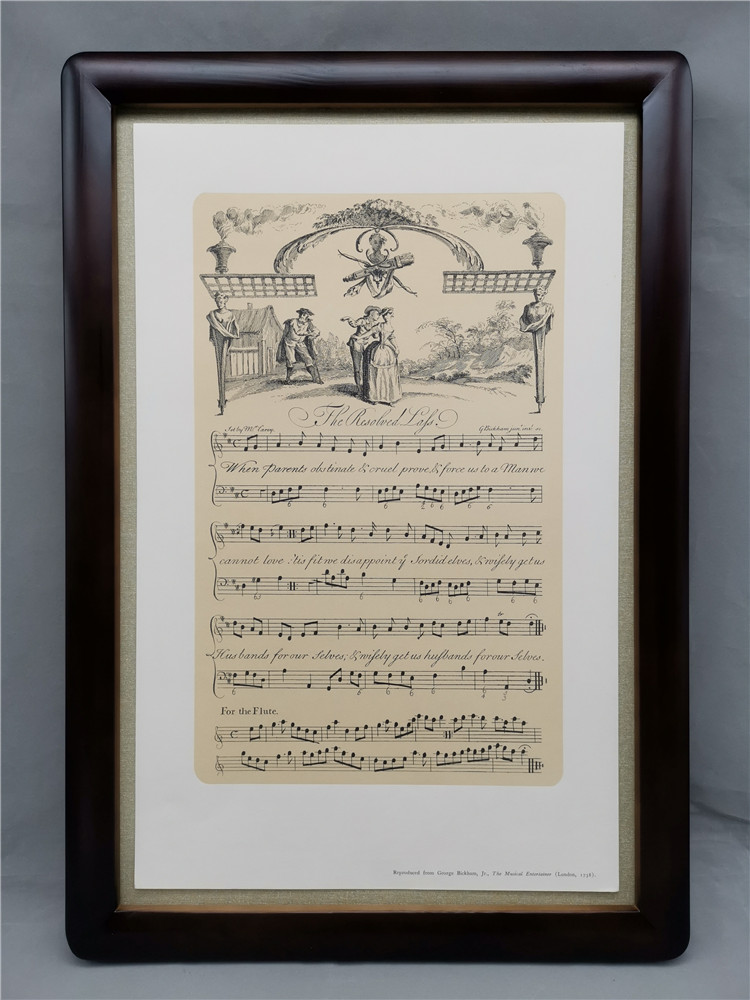 The Resolved Lass.
Set by Mr. Carey.
G. Bickham jun.r inv. sc.
When Parents obstinate & cruel prove, & force us to a Man we
cannot love :'tis fit we disappoint ẏ Sordid elves, & wisely get us
Husbands for our Selves; & wisely get us husbands for our Selves.
For the Flute.
Reproduced from George Bickham, Jr., The Musical Entertainer (London, 1738).